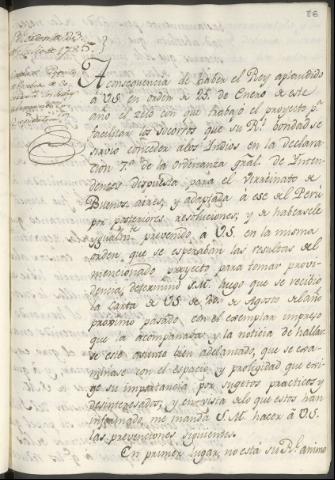 86
A consequencia de haber el Rey aplaudido
à VS. en orden de 25. de Enero de este
año el zelo con que trabajó el proyecto pª.
facilitar los Socorros que su Rl. bondad se
sirvio conceder alos Indios en la declara
cion 7.ª de la Ordenanza gral. de Inten
dentes dispuesta para el Virreinato de
Buenos aires, y adaptada à ese del Perù
por posteriores resoluciones; y de habersele
igualmte. prevenido à VS. en la misma
orden, que se esperaban las resultas del
mencionado proyecto para tomar provi
dencia, determinó S.M. luego que se recibió
la Carta de VS. de de Agosto del año
proximo pasado con el exemplar impreso
que la acompañaba, y la noticia de hallar
se este asunto bien adelantado, que se exa
minase con el espacio y prolijidad que exi
ge su importancia por sugetos practicos y
desinteresados; y en vista de lo que estos han
informado, me manda S.M. hacer à VS.
las prevenciones siguientes.
En primer lugar, no està su Rl. animo